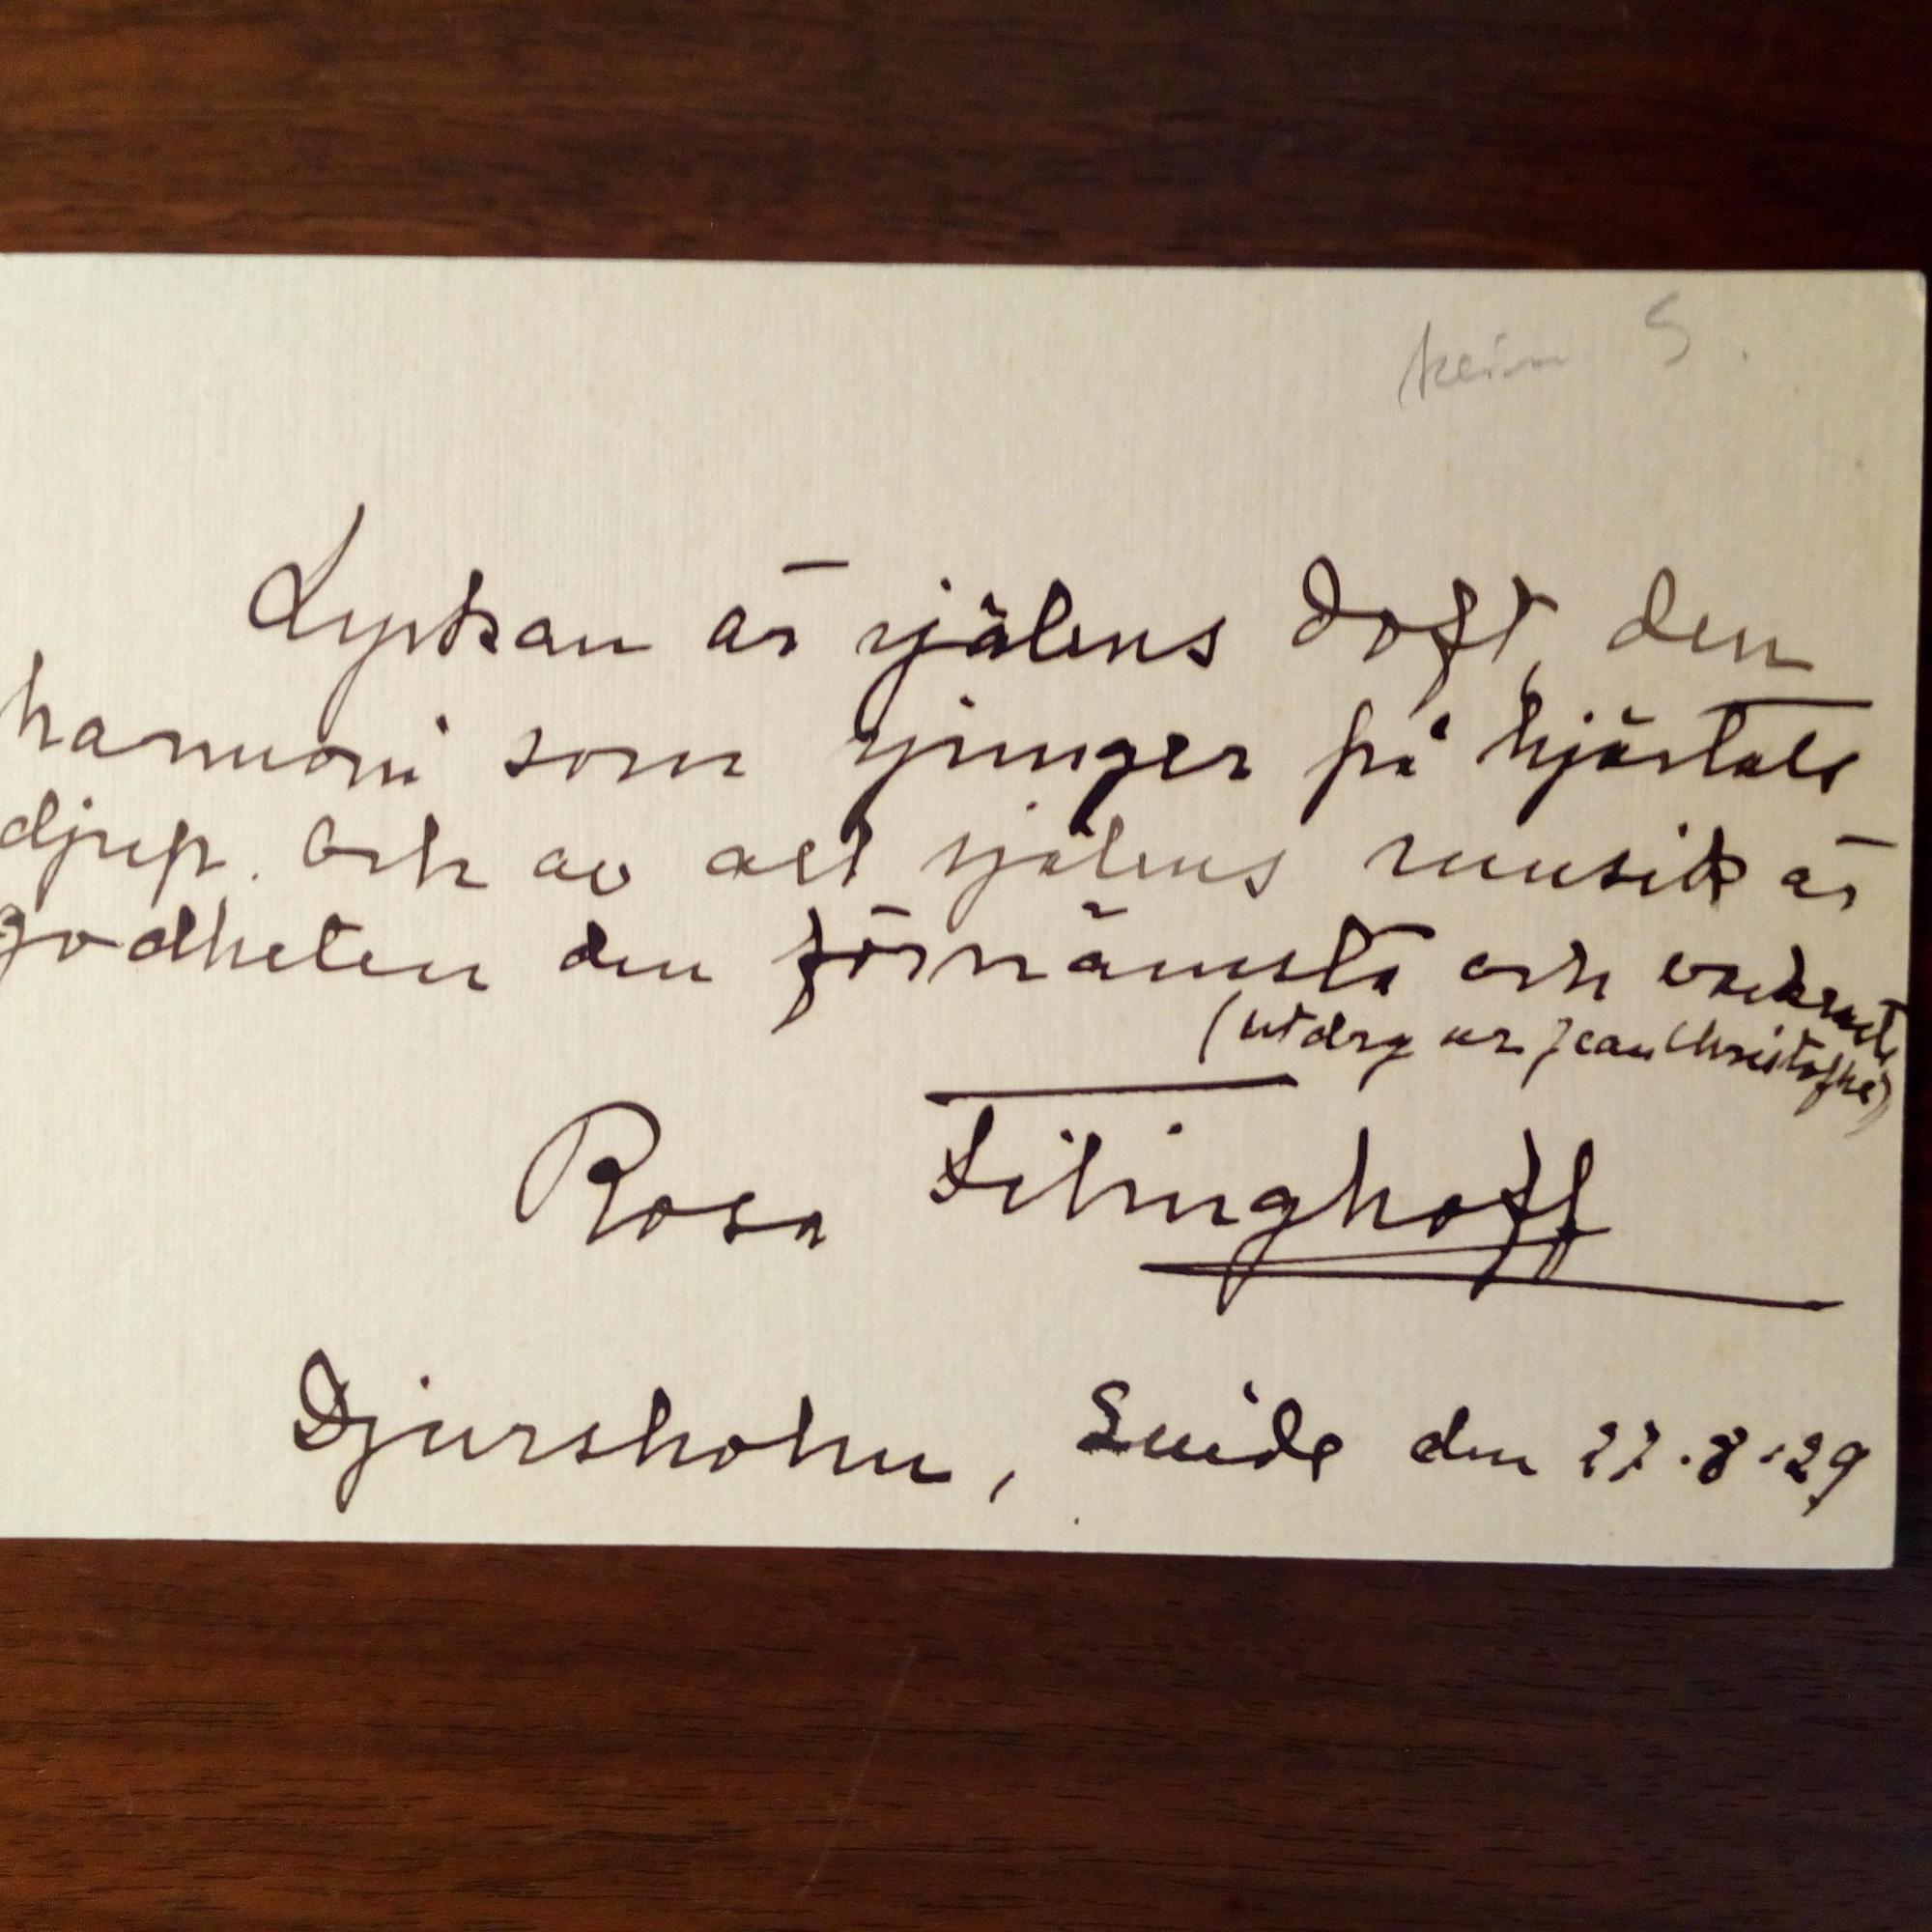 kein S.
Lyckan är själens doft, den
harmoni som sjunger på hjärtats
djup. Och av all själens musik är
godheten den förnämsta och vackraste
(utdrag ur Jean Christophe)
Rosa Fitinghoff
Djursholm, Suède den 27.8.29